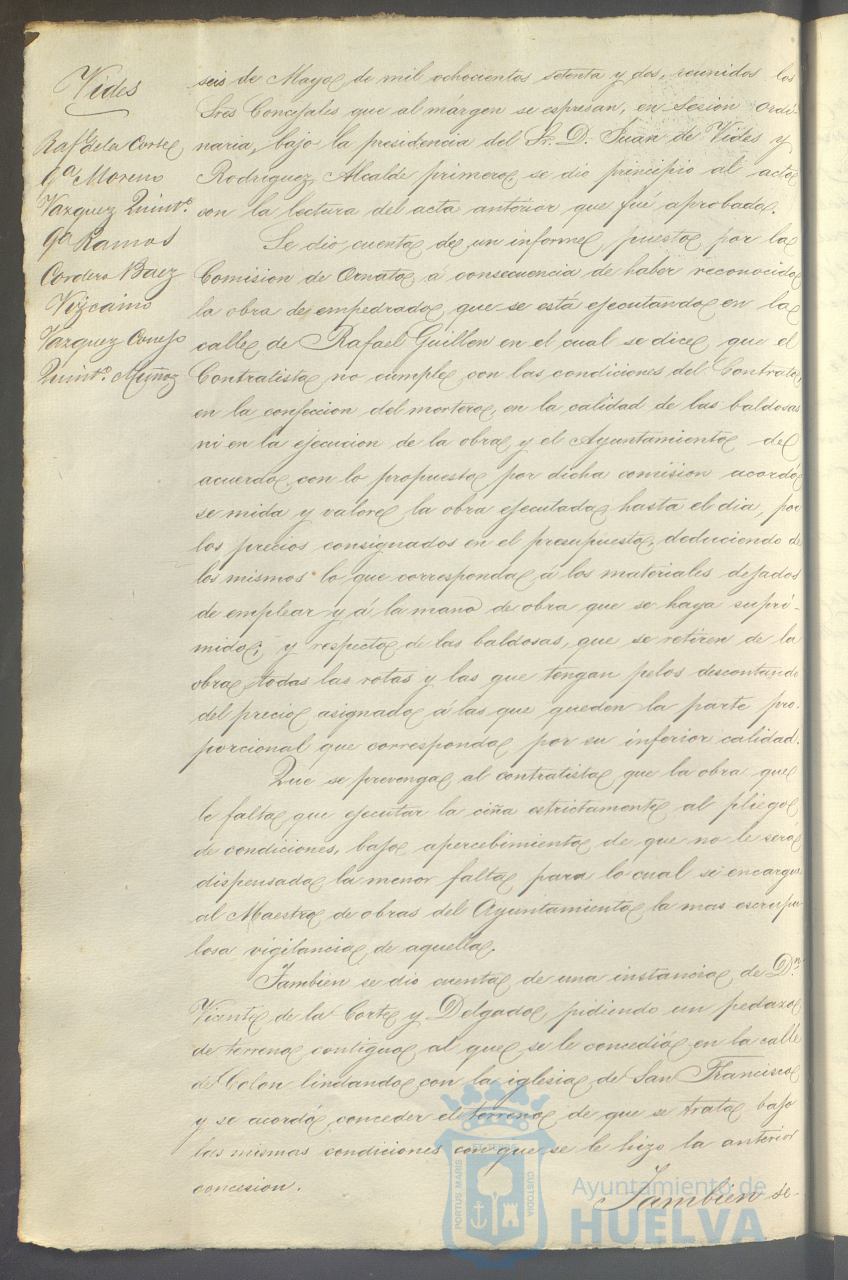 Vides
Raf. de la Corte
Gª Moreno
Vazquez Quintº
Gª Ramos
Cordero Baez
Vizcaino
Vazquez Conejo
Quintº Muñoz
seis de Mayo de mil ochocientos setenta y dos, reunidos los
Sres Concejales que al márgen se espresan, en Sesion ordi-
naria, bajo la presidencia del Sr. D. Juan de Vides y
Rodriguez, Alcalde primero; se dio principio al acto
con la lectura del acta anterior que fué aprobada.
Se dio cuenta de un informe, puesto por la
Comision de Ornato á consecuencia de haber reconocido
la obra de empedrado que se está ejecutando en la
calle de Rafael Guillen en el cual se dice, que el
Contratista no cumple con las condiciones del Contrato,
en la confeccion del mortero, en la calidad de las baldosas
ni en la ejecucion de la obra y el Ayuntamiento de
acuerdo con lo propuesto por dicha comision acordó
se mida y valore la obra ejecutada hasta el dia, por
los precios consignados en el presupuesto, deduciendo de
los mismos lo que corresponda á los materiales dejados
de emplear y á la mano de obra que se haya supri-
mido; y respecto de las baldosas, que se retiren de la
obra todas las rotas y las que tengan pelos descontando
del precio asignado á las que queden la parte pro-
porcional que corresponda por su inferior calidad.
Que se prevenga al contratista que la obra que
le falta que ejecutar la ciña estrictamente al pliego
de condiciones, bajo apercebimiento de que no le será
dispensada la menor falta para lo cual se encargue
al Maestro de obras del Ayuntamiento la mas escrupu-
losa vigilancia de aquella.
Tambien se dio cuenta de una instancia de D.n
Vicente de la Corte y Delgado, pidiendo un pedazo
de terreno contiguo al que se le concedió en la calle
de Colon lindando con la iglesia de San Francisco
y se acordó conceder el terreno de que se trata bajo
las mismas condiciones con que se le hizo la anterior
concesion.
Tambien se
PORTUS MARIS
ET TERRE
CUSTODIA
Ayuntamiento de
HUELVA